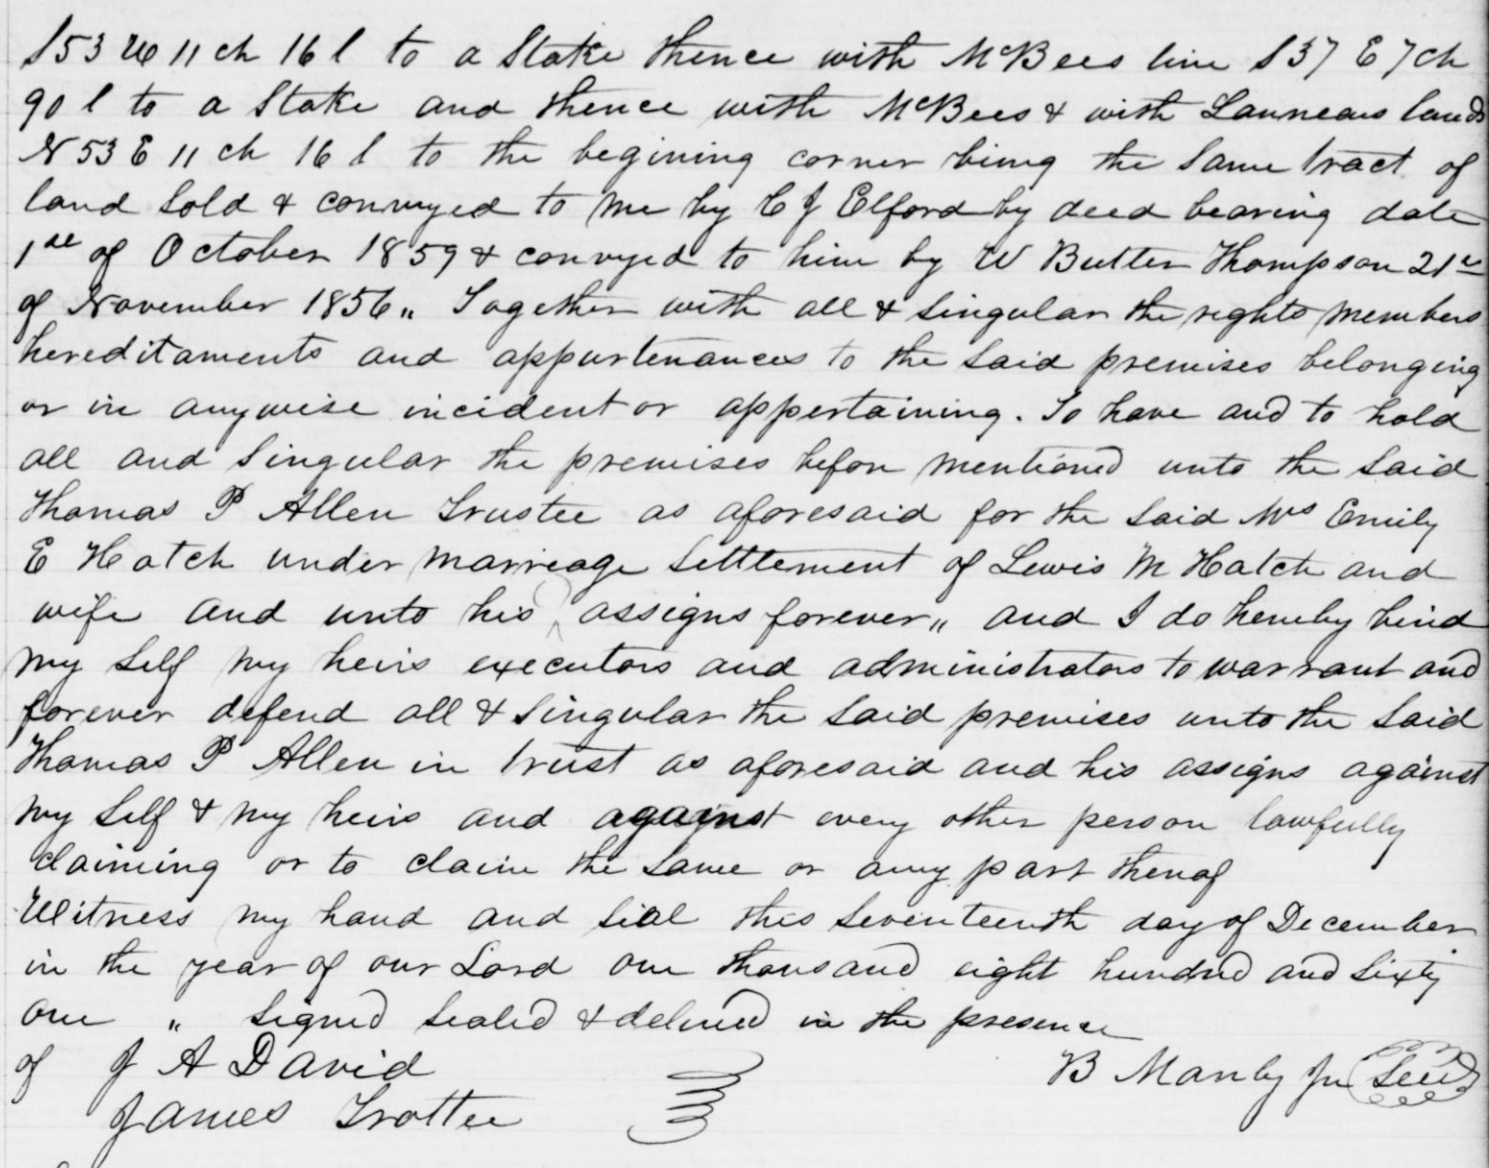 S53 W 11 ch 16 l to a Stake thence with McBees line S 37 E 7 ch
90 l to a Stake and thence with McBees & with Lanneaus lands
N 53 E 11 ch 16 l to the begining corner being the Same tract of
land Sold & conveyed to me by C J Elford by deed bearing date
1st of October 1859 & convyed to him by W Butler Thompson 21st
of November 1856 " Together with all & Singular the rights members
hereditaments and appurtenances to the Said premises belonging
or in anywise incident or appertaining. To have and to hold
all and Singular the premises before mentioned unto the Said
Thomas P Allen Trustee as aforesaid for the Said Mrs Emily
E Hatch under marriage Settlement of Lewis M Hatch and
wife and unto his assigns forever " and I do hereby bind
my Self my heirs executors and administrators to warrant and
forever defend all & Singular the Said premises unto the Said
Thomas P Allen in trust as aforesaid and his assigns against
my Self & my heirs and against every other person lawfully
claiming or to claim the Same or any part thereof
Witness my hand and Seal this Seventeenth day of December
in the year of our Lord one thousand eight hundred and Sixty
One " Signed Sealed & delivered in the presence
of J A David B Manly Jr Seal
James Trotter